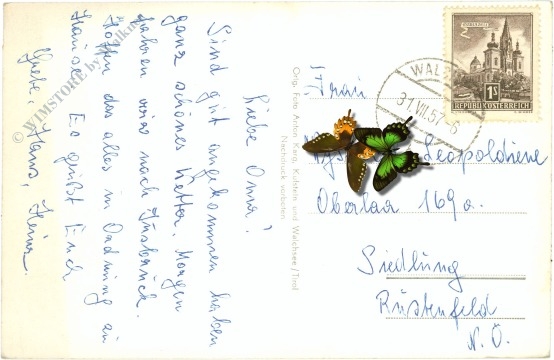 Liebe Oma!
Sind gut angekommen haben
ganz schönes Wetter. Morgen
fahren wir nach Insbruck.
Hoffen das alles in Ordnung ist
Es grüßt Euch
Grete, Hans, Heinz
Orig. Foto Kufstein und Walchsee/Tirol
Nachdruck verboten
Frau
Leopoldiene
Oberlaa 169a.
Siedlung
Rustenfeld
N.Ö.
WAL
31.VII.57
1S
REPUBLIK ÖSTERREICH
© WIMSTORE by